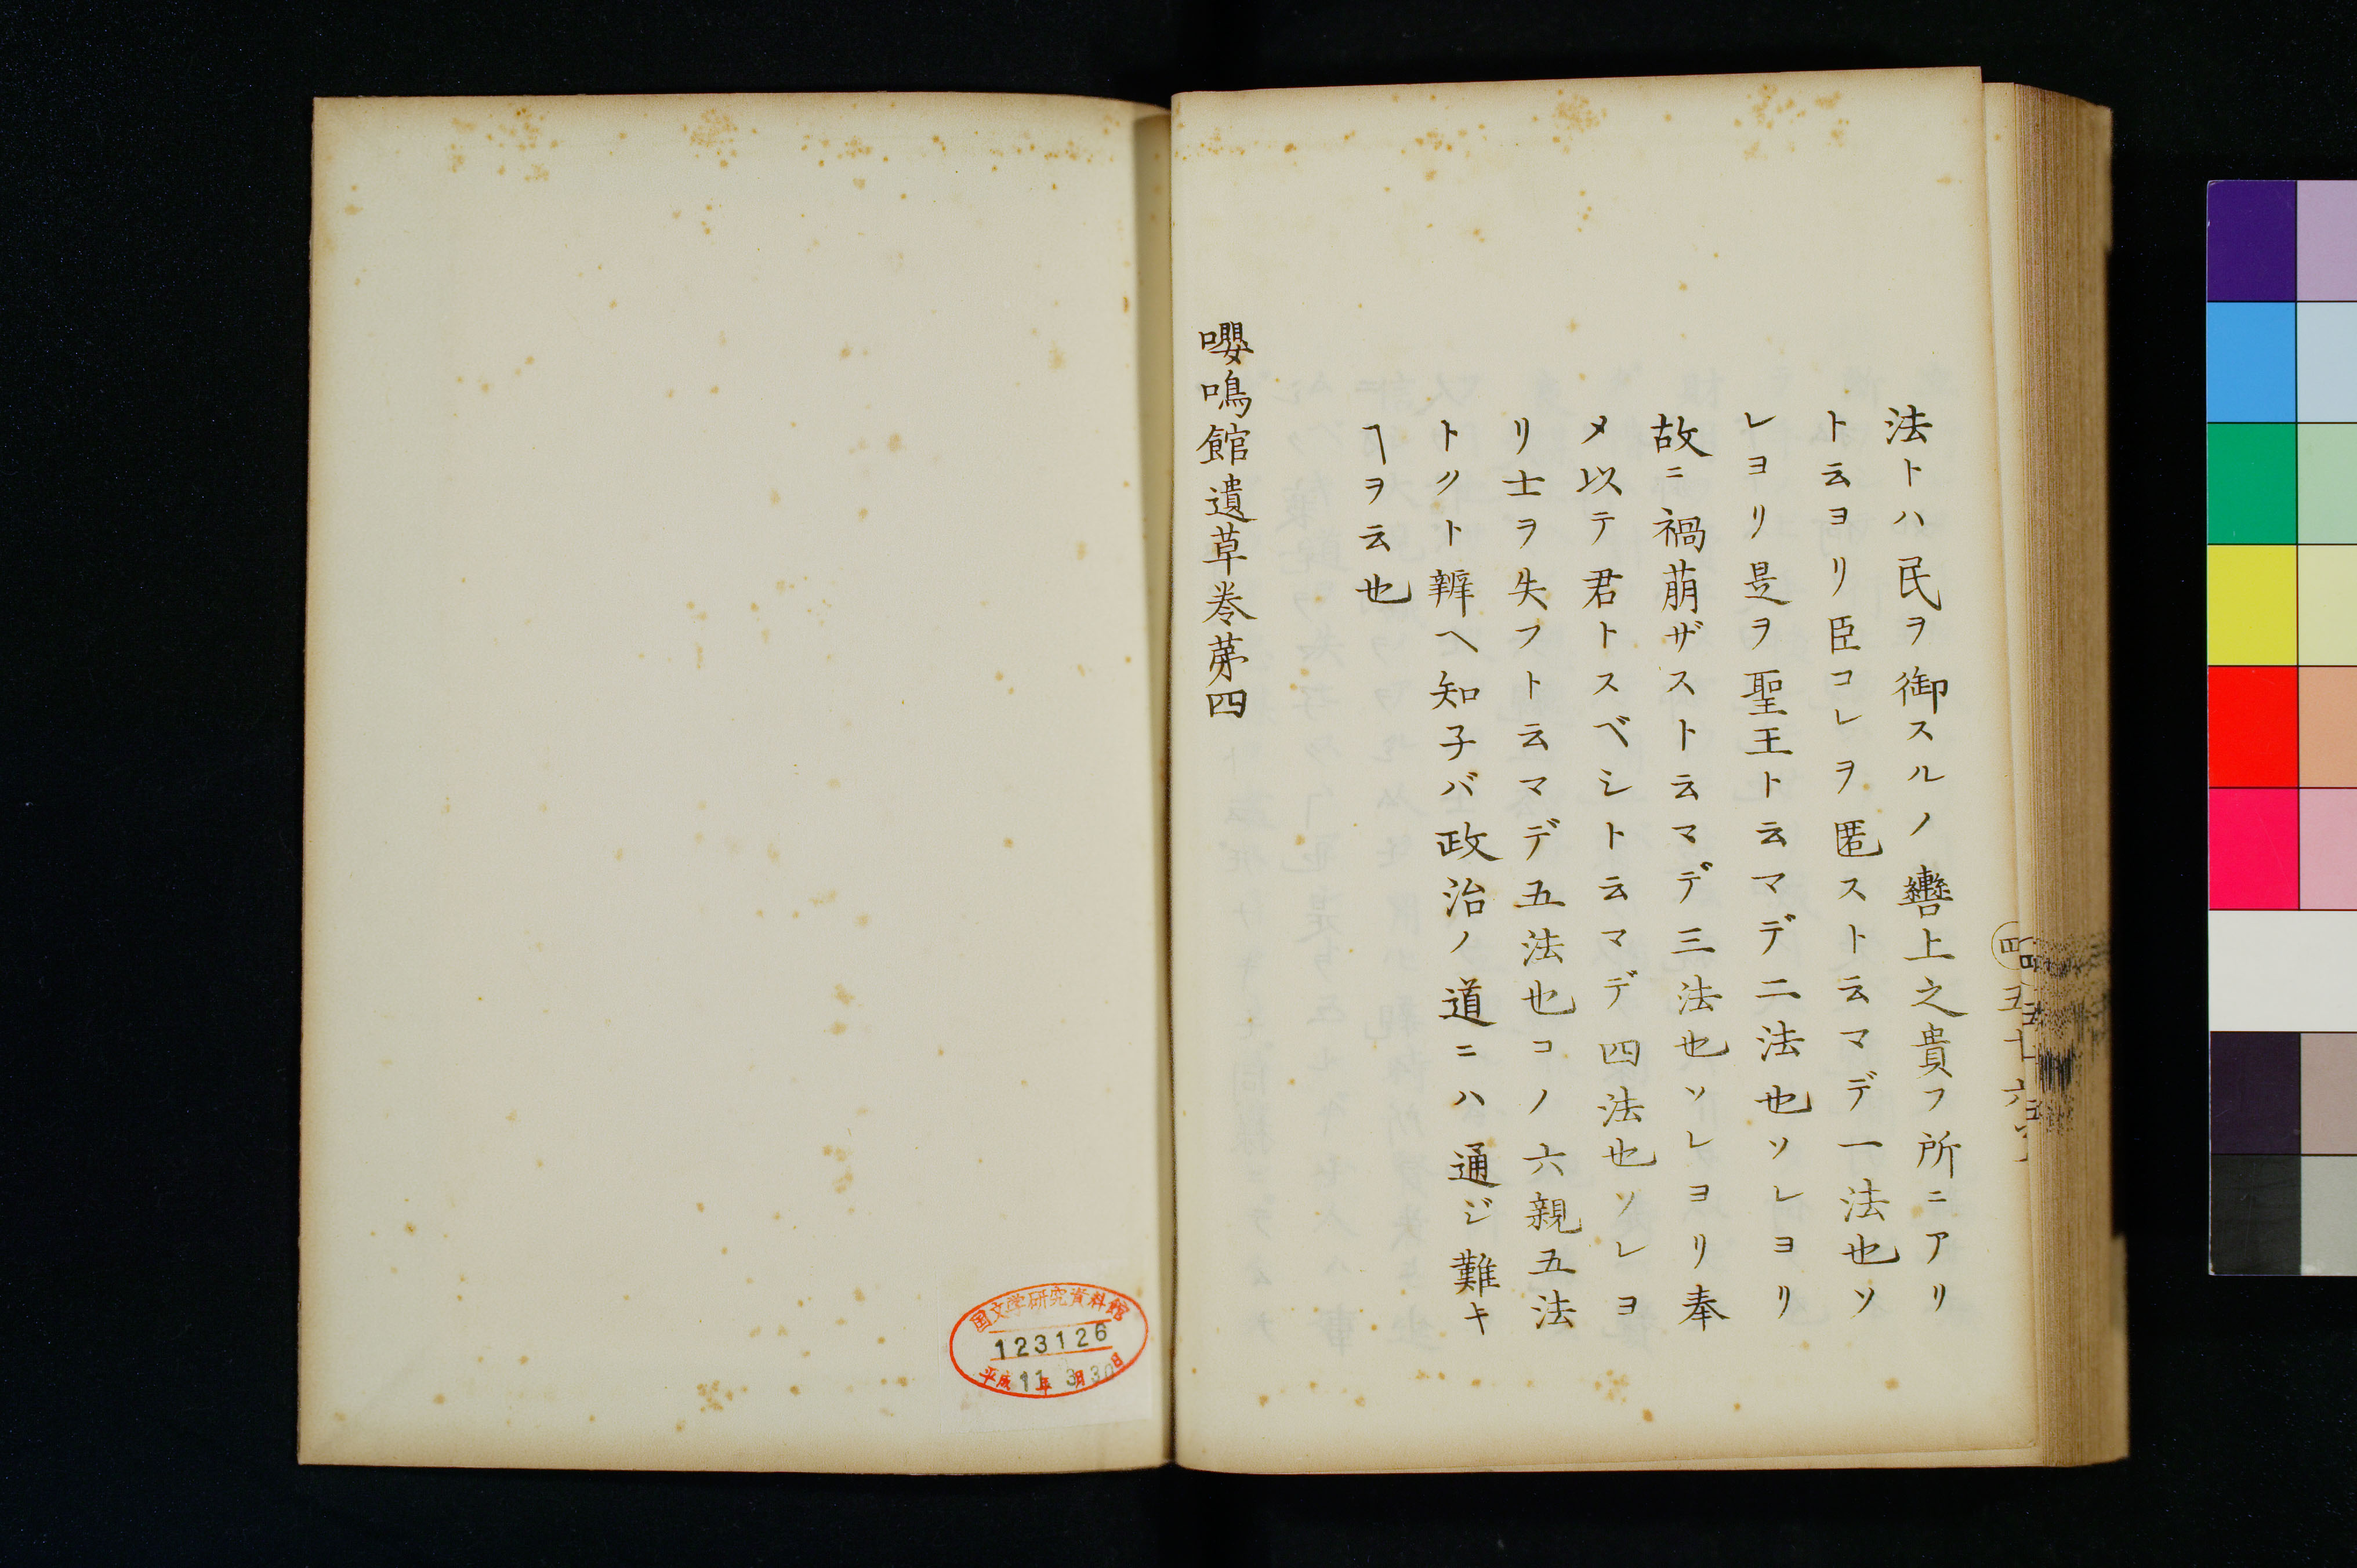 法トハ民ヲ御スルノ轡上之貴フ所ニアリ
ト云ヨリ臣コレヲ匿スト云マデ一法也ソ
レヨリ是ヲ聖王ト云マデ二法也ソレヨリ
故ニ禍萠ザスト云マデ三法也ソレヨリ奉
メ以テ君トスベシト云マデ四法也ソレヨ
リ士ヲ失フト云マデ五法也コノ六親五法
トクト辨ヘ知子バ政治ノ道ニハ通ジ難キ
ヿヲ云也
嚶鳴館遺草巻苐四
四 五十六
国文学研究資料館
123126
平成11年3月30日